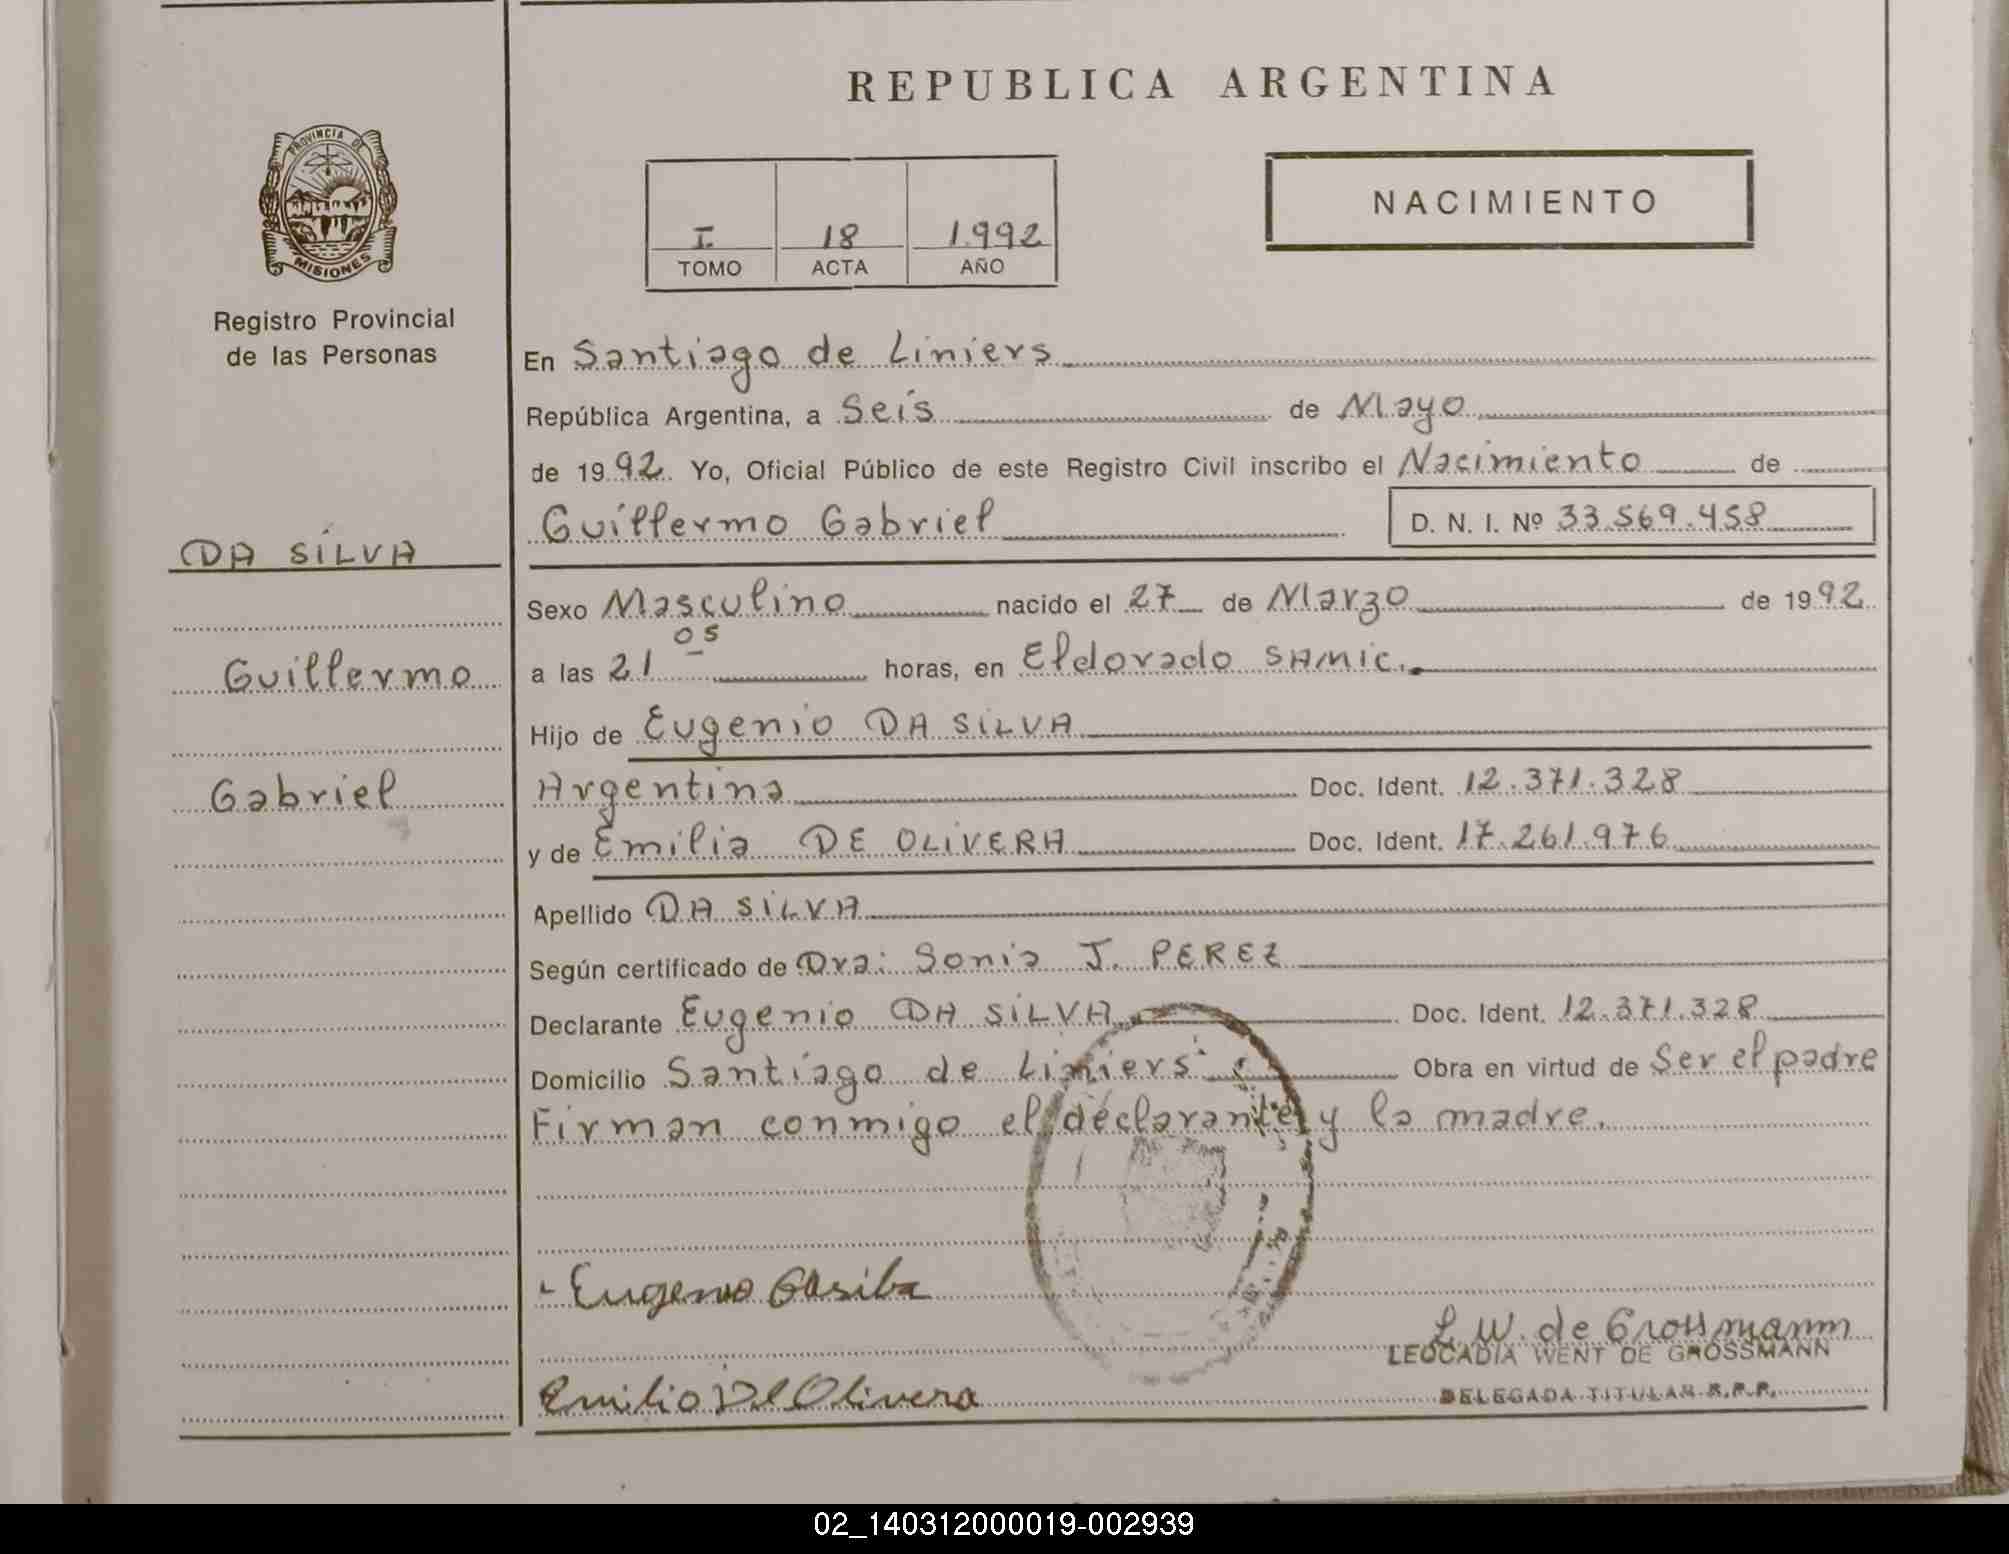 REPUBLICA ARGENTINA
PROVINCIA DE
MISIONES
Registro Provincial
de las Personas
I. 18 1.992
TOMO ACTA AÑO
NACIMIENTO
En Santiago de Liniers
República Argentina, a Seis de Mayo
de 1992. Yo, Oficial Público de este Registro Civil inscribo el Nacimiento de
Guillermo Gabriel D. N. I. Nº 33.569.458
DA SILVA
Guillermo
Gabriel
Sexo Masculino nacido el 27 de Marzo de 1992
a las 21 05 horas, en Eldorado SAMIC.
Hijo de Eugenio DA SILVA
Argentina Doc. Ident. 12.371.328
y de Emilia DE OLIVERA Doc. Ident. 17.261.976
Apellido DA SILVA
Según certificado de Dra: Sonia J. PEREZ
Declarante Eugenio DA SILVA Doc. Ident. 12.371.328
Domicilio Santiago de Liniers Obra en virtud de Ser el padre
Firman conmigo el declarante y la madre.
Eugenio
L. W. de Grossmann
LEOCADIA WENT DE GROSSMANN
Emilia De Olivera
DELEGADA TITULAR R.P.P.
02_140312000019-002939